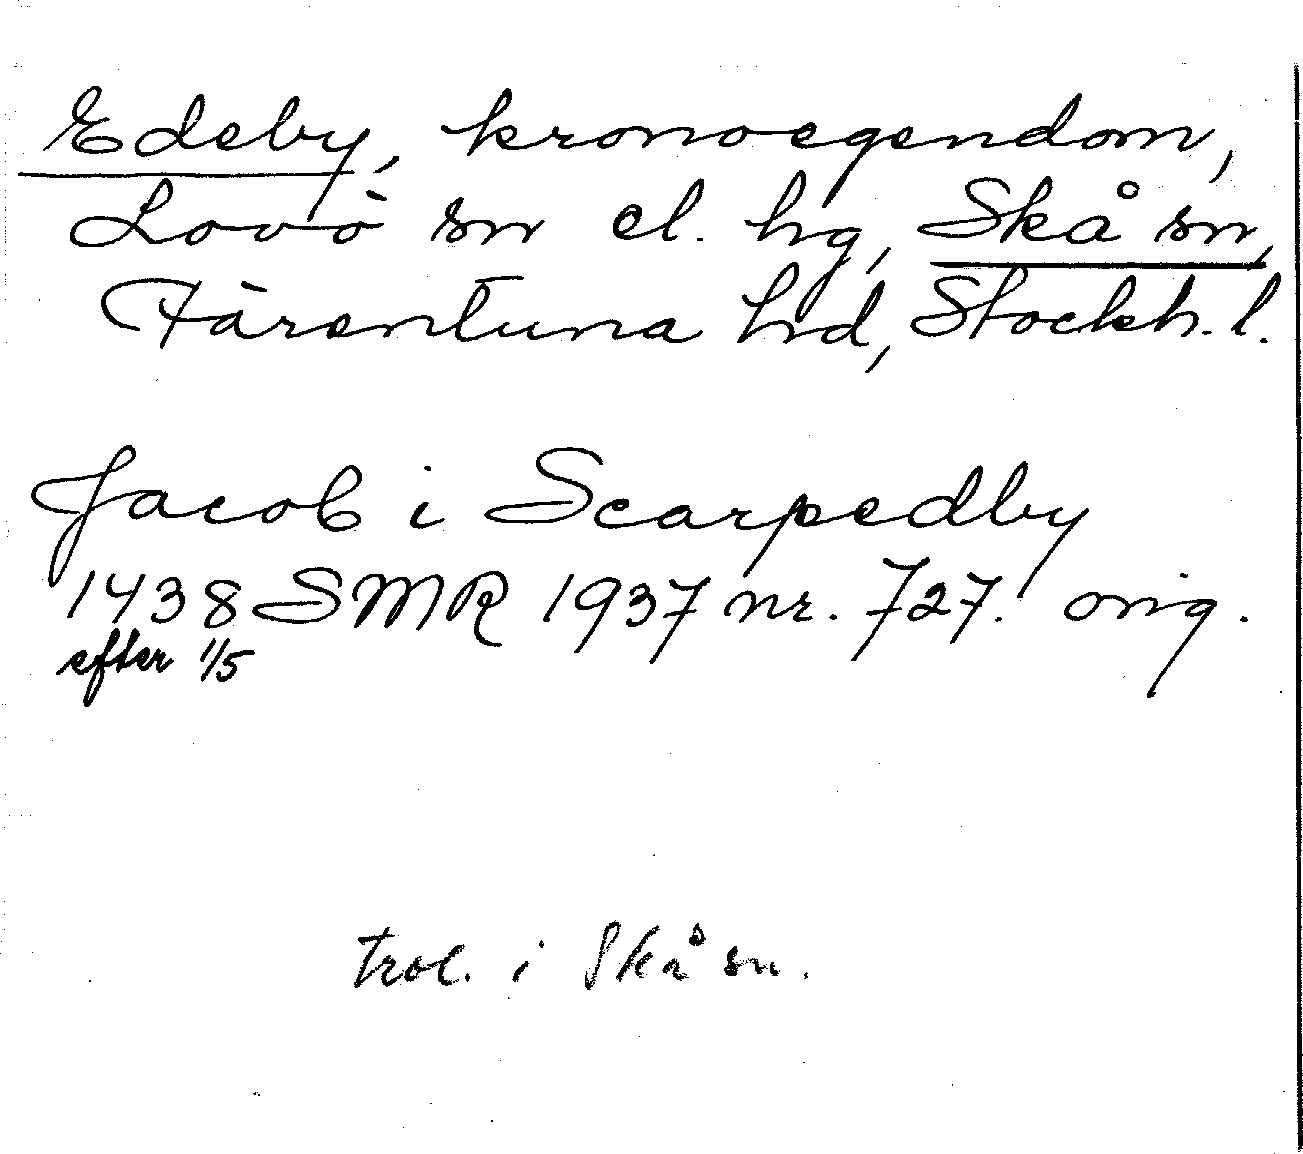 Edeby, kronoegendom,
Lovö sn el. hg, Skå sn,
Färentuna hd, Stockh. l.
Jacob i Scarpedby
1438 SMR 1937 nr. 727. orig.
efter 1/5
trol. i Skå sn.